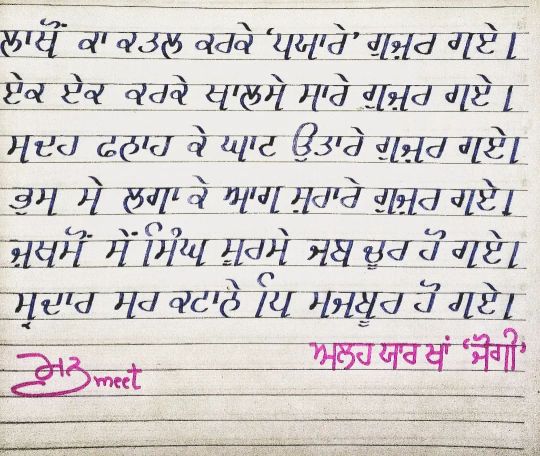 ਲਾਖੋਂ ਕਾ ਕਤਲ ਕਰਕੇ ‘ਪਯਾਰੇ’ ਗੁਜ਼ਰ ਗਏ।
ਏਕ ਏਕ ਕਰਕੇ ਖਾਲਸੇ ਸਾਰੇ ਗੁਜ਼ਰ ਗਏ।
ਸਦਹ ਫਨਾਹ ਕੇ ਘਾਟ ਉਤਾਰੇ ਗੁਜ਼ਰ ਗਏ।
ਭੁਸ ਮੇ ਲਗਾ ਕੇ ਆਗ ਸ਼ਰਾਰੇ ਗੁਜ਼ਰ ਗਏ।
ਜ਼ਖਮੋਂ ਸੇਂ ਸਿੰਘ ਸੂਰਮੇ ਜਬ ਚੂਰ ਹੋ ਗਏ।
ਸ੍ਰਦਾਰ ਸਰ ਕਟਾਨੇ ਪਿ ਮਜਬੂਰ ਹੋ ਗਏ।
ਅਲਹ ਯਾਰ ਖਾਂ ‘ਜੋਗੀ’
meet